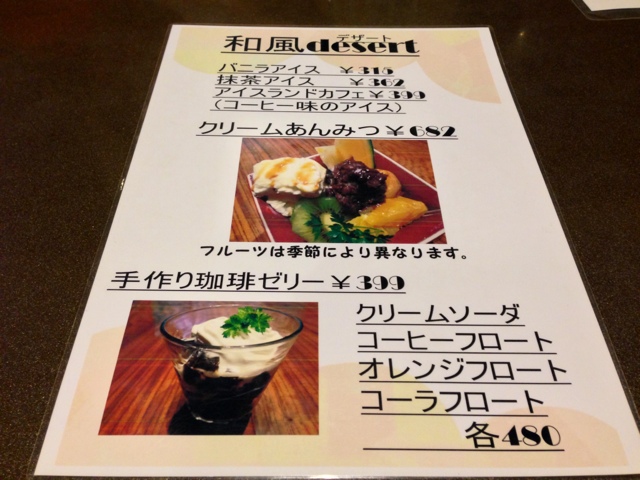 デザート
和風desert
バニラアイス ￥315
抹茶アイス ￥362
アイスランドカフェ￥399
(コーヒー味のアイス)
クリームあんみつ￥682
フルーツは季節により異なります。
手作り珈琲ゼリー￥399
クリームソーダ
コーヒーフロート
オレンジフロート
コーラフロート
各480